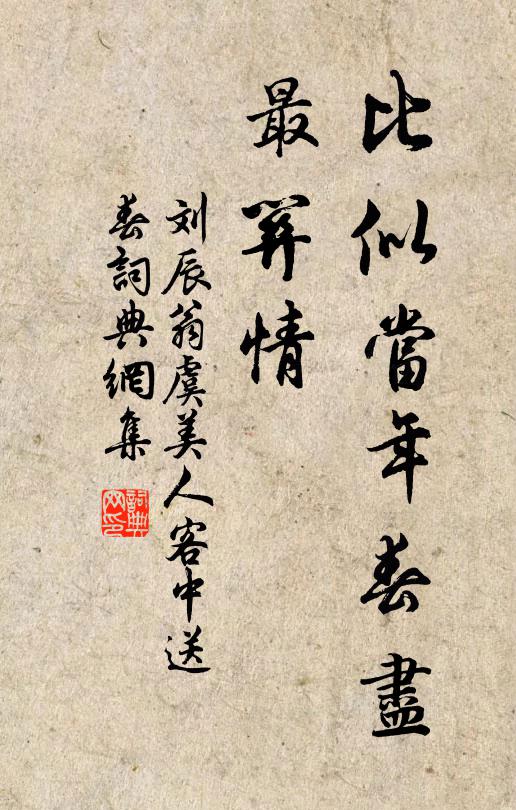 比似當年春盡
最關情
刘辰翁虞美人客中送
春詞典網集
詞典
网印